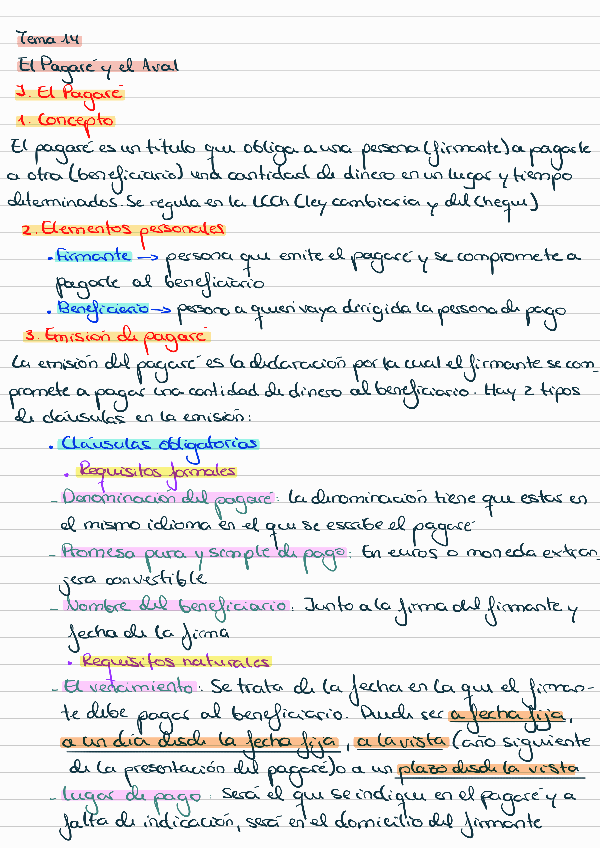 Tema 14
El Pagaré y el Aval
I. El Pagaré
1. Concepto
El pagaré es un título que obliga a una persona (firmante) a pagarle
a otra (beneficiario) una cantidad de dinero en un lugar y tiempo
determinados. Se regula en la LCCh (ley cambiaria y del cheque)
2. Elementos personales
· Firmante → persona que emite el pagaré y se compromete a
pagarle al beneficiario
· Beneficiario → persona a quien vaya dirigida la persona de pago
3. Emisión de pagaré
La emisión del pagaré es la declaración por la cual el firmante se com_
promete a pagar una cantidad de dinero al beneficiario. Hay 2 tipos
de cláusulas en la emisión:
· Cláusulas obligatorias
· Requisitos formales
- Denominación del pagaré: la denominación tiene que estar en
el mismo idioma en el que se escribe el pagaré
- Promesa pura y simple de pago: En euros o moneda extran_
jera convertible
- Nombre del beneficiario: Junto a la firma del firmante y
fecha de la firma
· Requisitos naturales
- El vencimiento: Se trata de la fecha en la que el firman-
te debe pagar al beneficiario. Puede ser a fecha fija,
a un día desde la fecha fija, a la vista (año siguiente
de la presentación del pagaré) o a un plazo desde la vista
- Lugar de pago: Será el que se indique en el pagaré y a
falta de indicación, será en el domicilio del firmante